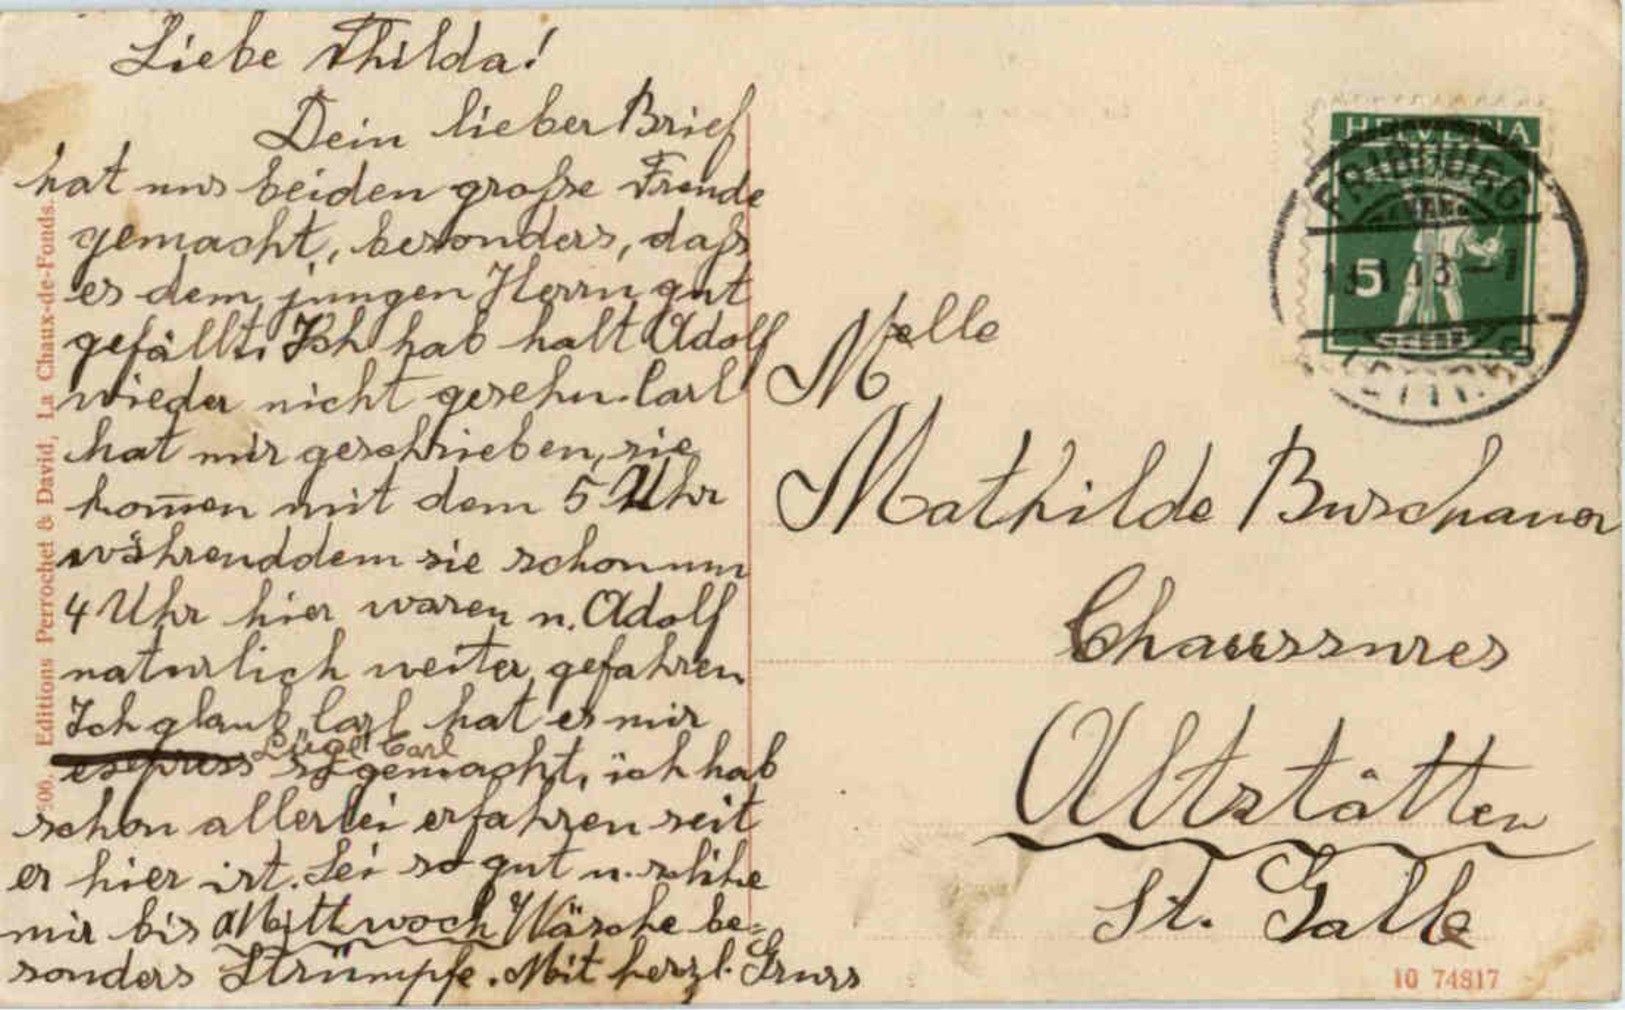 Liebe Thilda!
Dein lieber Brief
hat uns beiden große Freude
gemacht, besonders, daß
es dem jungen Herrn gut
gefällt. Ich hab halt Adolf
wieder nicht gesehn. Carl
hat mir geschrieben, sie
kom̅en mit dem 5 Uhr
währenddem sie schon um
4 Uhr hier waren u. Adolf
naturlich weiter gefahren
Ich glaub Carl hat es mir
Carl
so gemacht, ich hab
schon allerlei erfahren seit
er hier ist. Sei so gut u. schike
mir bis Mittwoch Wäsche be=
sonders Strümpfe. Mit herzl. Gruss
Editions Perrochet & David, La Chaux-de-Fonds.
HELVETIA
5
FRIBOURG
Melle
Mathilde Buschauer
Chaussures
Altstätten
St. Galle
10 74817